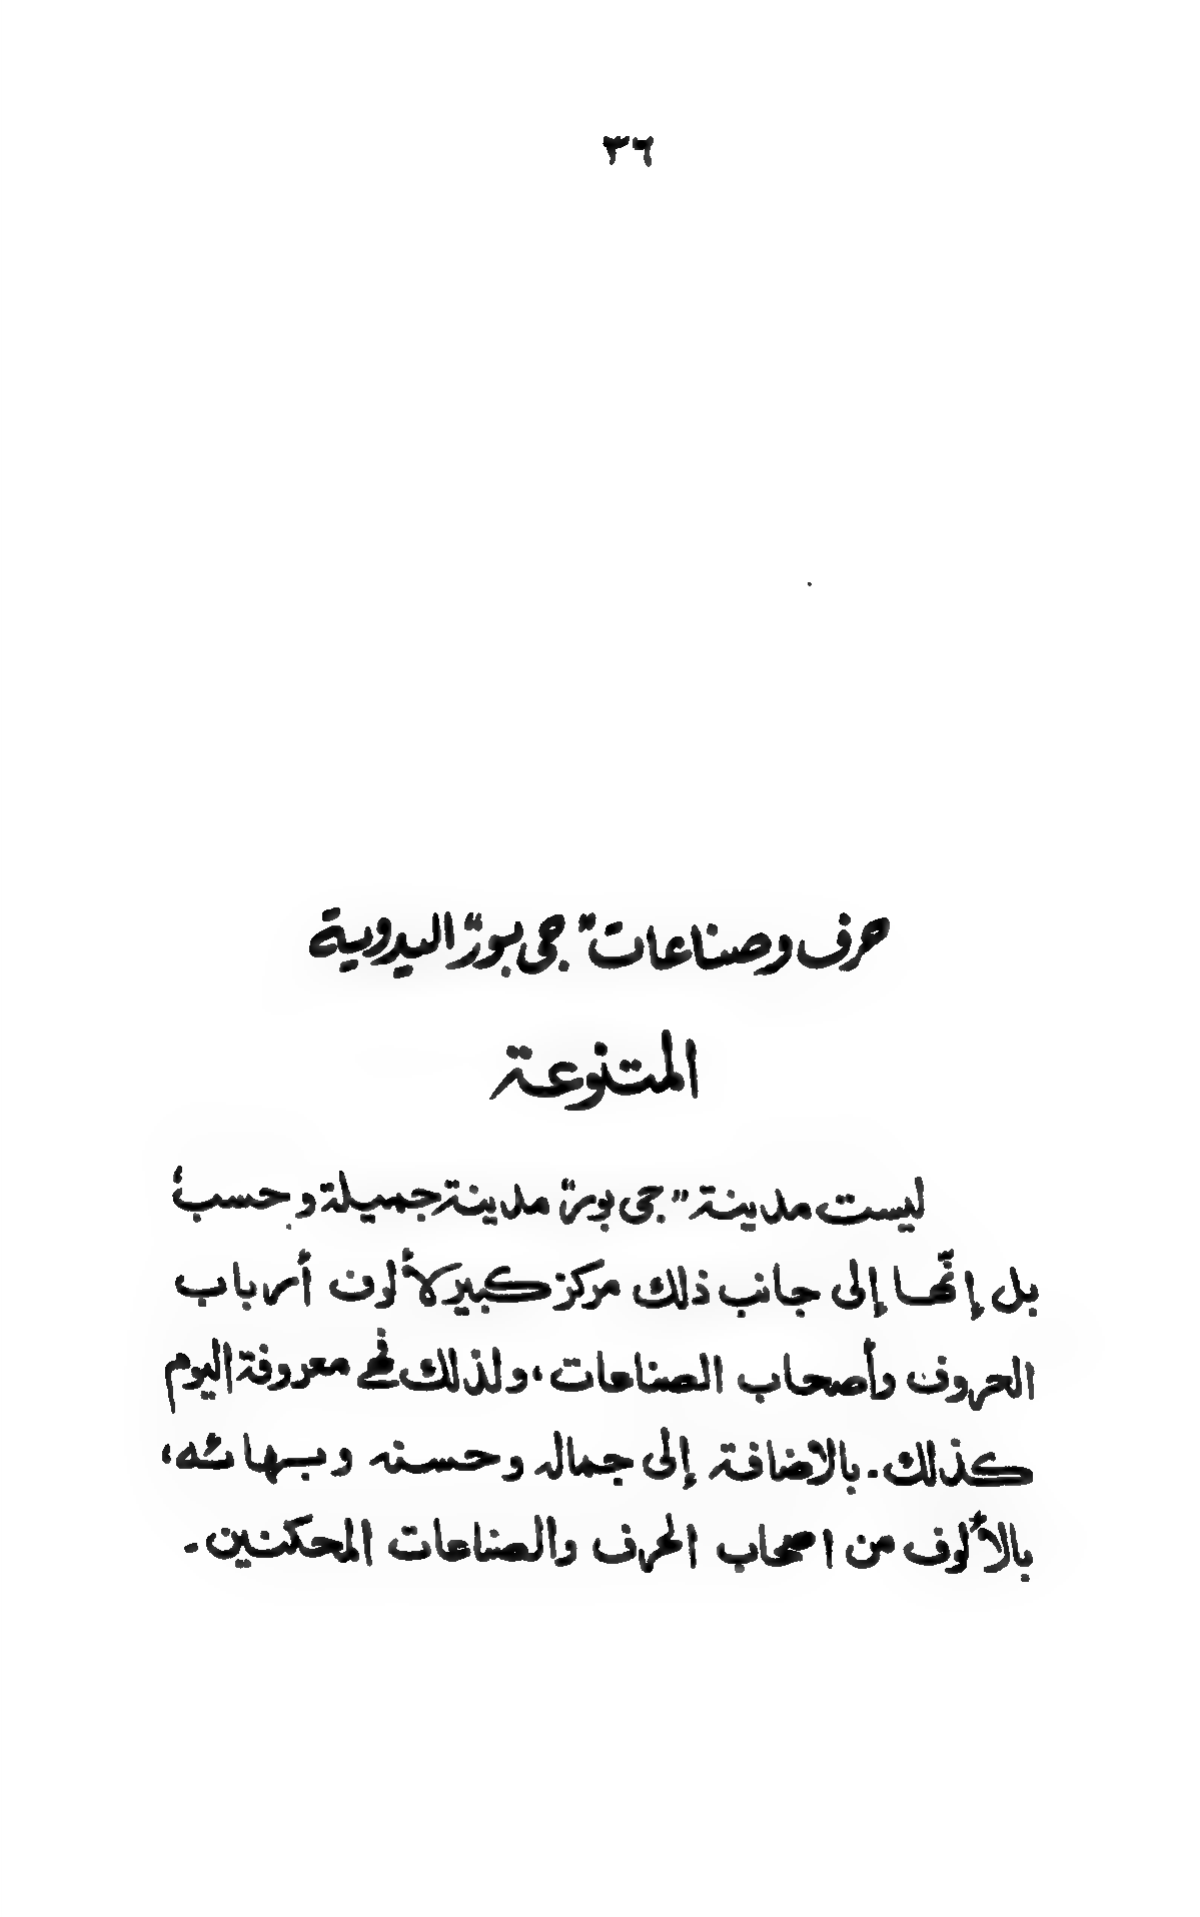 ٣٦
حرف وصناعات "جى بور" اليدوية
المتنوعة
ليست مدينة "جى بور" مدينة جميلة وحسب،
بل إنّها إلى جانب ذلك مركز كبير لألوف أرباب
الحروف وأصحاب الصناعات، ولذلك فهي معروفة اليوم
كذلك. بالاضافة إلى جماله وحسنه وبهائه،
بالألوف من اصحاب الحرف والصناعات المحكنين.